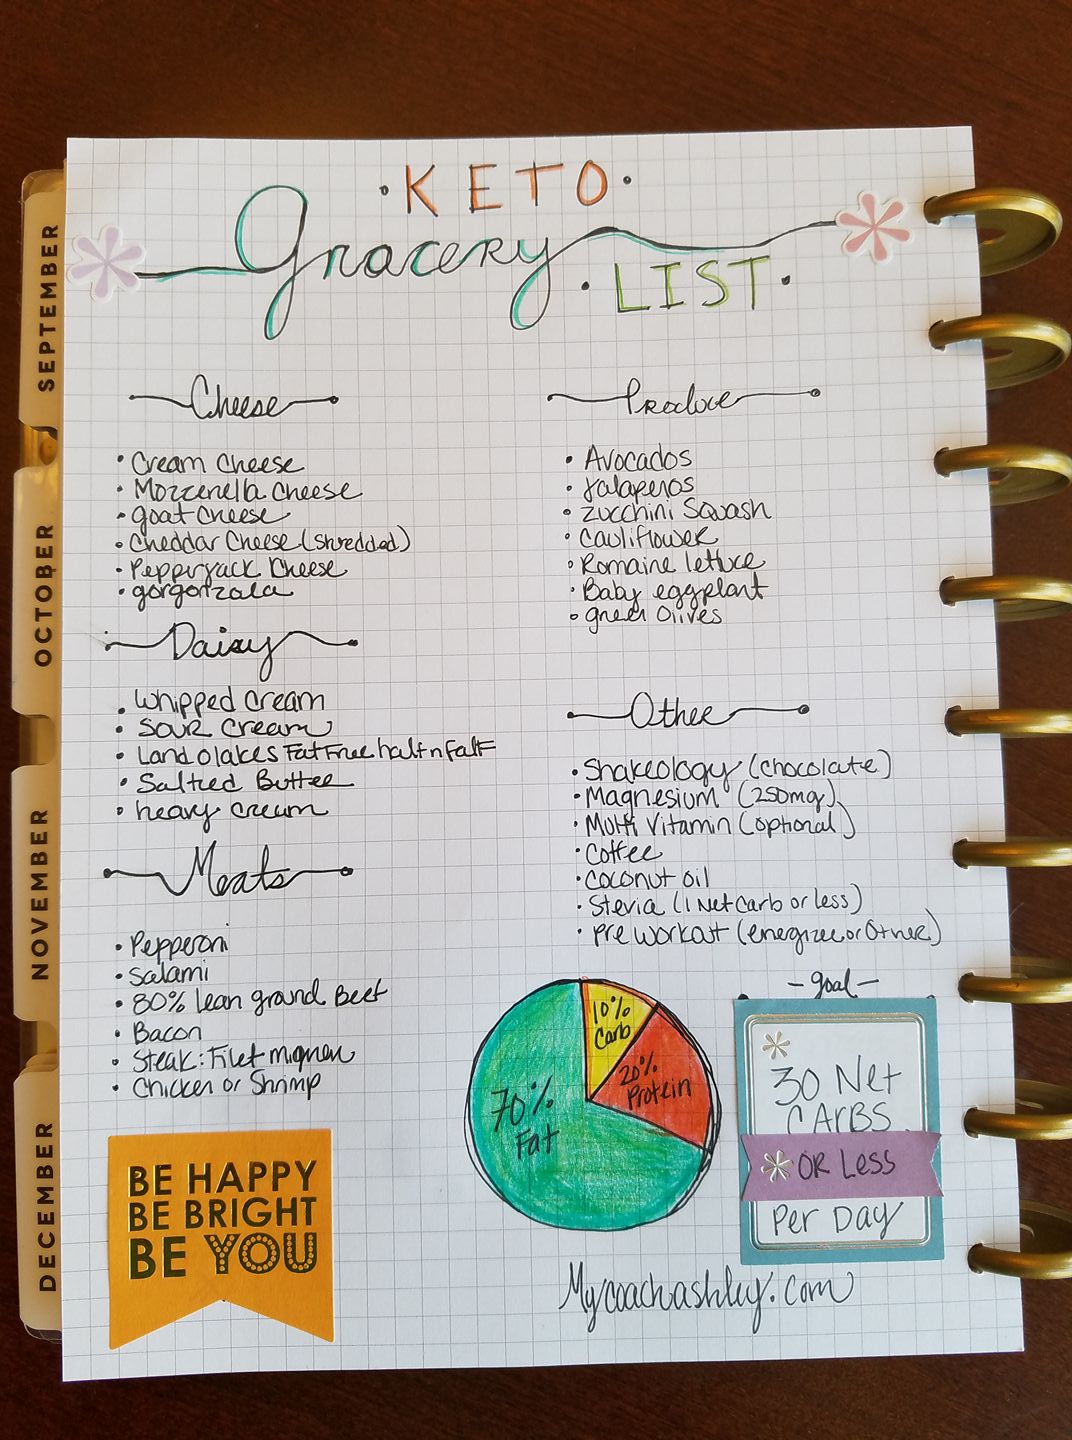 · KETO ·
Grocery
· LIST ·
Cheese
• Cream Cheese
• Mozzerella Cheese
• goat Cheese
• Cheddar Cheese (Shredded)
• Pepperjack Cheese
• gorgonzola
Daisy
• Whipped Cream
• Sour Cream
• Land o lakes Fat Free half n falf
• Salted Butter
• heavy cream
Meats
• Pepperoni
• Salami
• 80% lean ground Beef
• Bacon
• Steak: Filet mignon
• Chicken or Shrimp
BE HAPPY
BE BRIGHT
BE YOU
Produce
• Avocados
• Jalapenos
• Zucchini Squash
• Cauliflower
• Romaine lettuce
• Baby eggplant
• green Olives
Other
• Shakeology (Chocolate)
• Magnesium (250mg)
• Multi Vitamin (optional)
• Coffee
• Coconut oil
• Stevia (1 Net Carb or less)
• Pre Workout (energize or Other)
10%
Carb
20%
Protein
70%
Fat
- goal -
30 Net
CARBS
OR Less
Per Day
Mycoachashley.com
SEPTEMBER
OCTOBER
NOVEMBER
DECEMBER